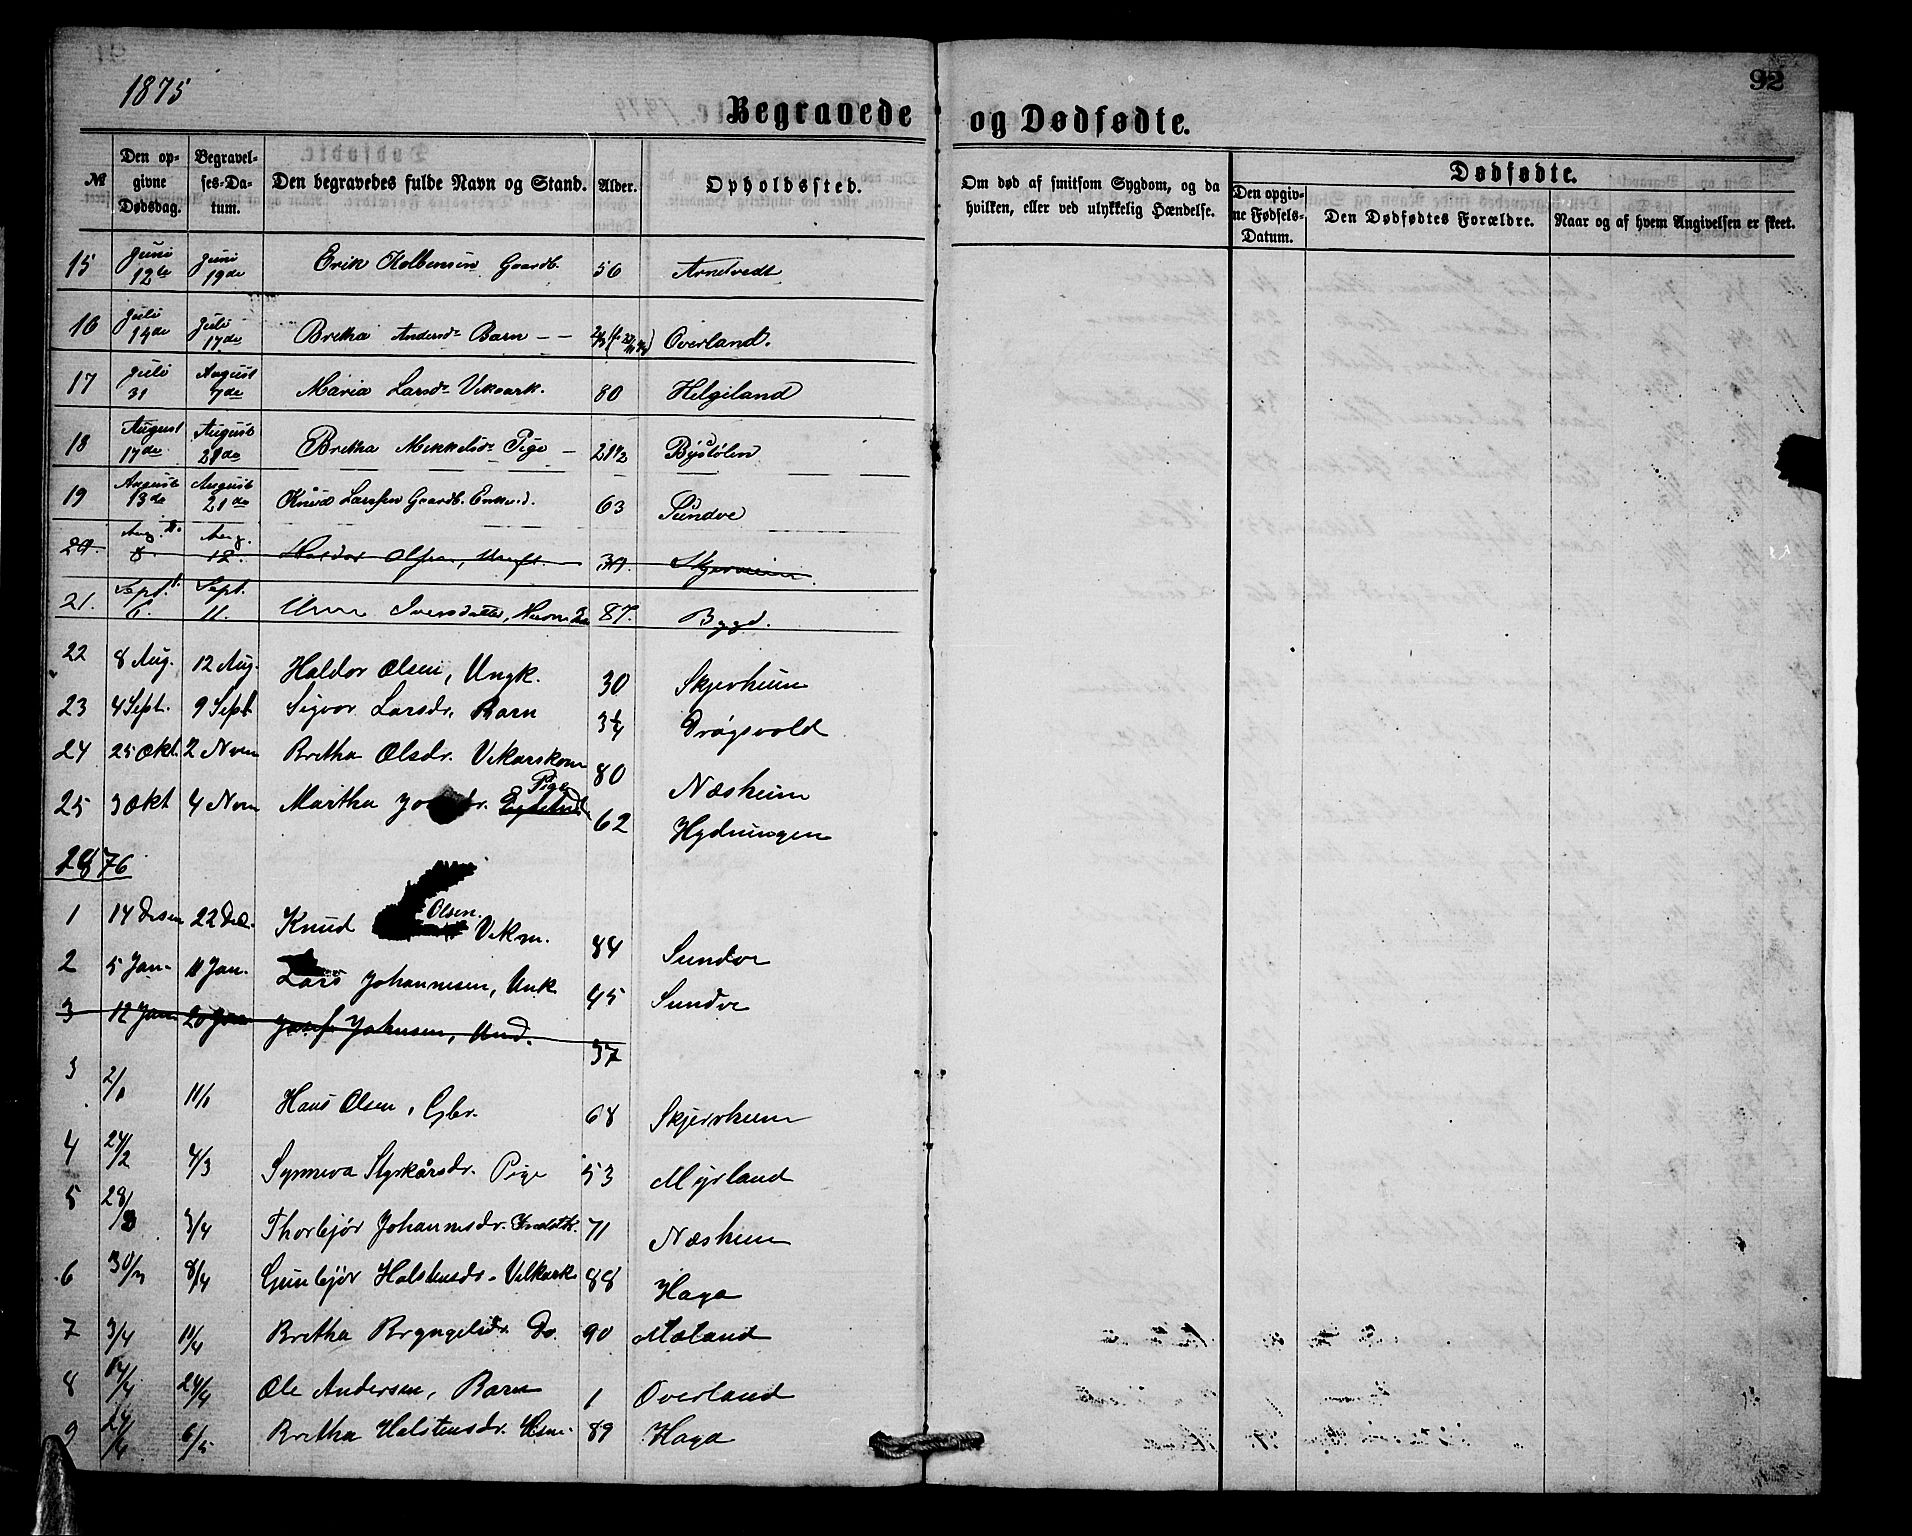 1875
92
Begravede og Dødfødte.
№ Den opgivne Dødsdag. Begravelses-Datum. Den begravedes fulde Navn og Stand. Alder. Opholdssted. Om død af smitsom Sygdom, og da hvilken, eller ved ulykkelig Hændelse. Dødfødte. Den opgivne Fødsels-Datum. Den Dødfødtes Forældre. Naar og af hvem Angivelsen er skeet.
15 Juni 12te Juni 19de Erik Kolbensen Gaardb. 56 Arnetvedt
16 Juli 14de Juli 17de Bretha Andersdr Barn Overland.
17 Juli 31 August 7de Maria Larsdr Vikark. 80 Helgiland
18 August 17de August 21de Bretha Mikkelsdr Pige 21 1/2 Bystølen
19 August 13de August 21de Knud Larssen Gaardb. Enkem. 63 Sundve
20. Aug. 8. Aug. 12. Haldor Olsen, Ungk. 30. Skjerveim
21. Sept. 6. Sept. 11. Iversdatter, 87. Bygd.
22 8 Aug. 12 Aug. Haldor Olsen, Ungk. 30 Skjerheim
23 4 Sept. 9 Sept Sigvor Larsdr, Barn 3 1/4 Drøgsvold
24 25 Okt. 2 Novm Bretha Olsdr. Vikarskone 80 Næsheim
25 3 Okt 4 Novm Martha dr. Pige 62 Hydningen
1876
1 14 Desem 22 Dec. Knud Olsen. Vikm. 84 Sundve
2 5 Jan. 11 Jan. Lars Johannesen, Unk 45 Sundve
3 12 Jan 20 Jan Josef Johnsen, Und. 37
3 2/1 11/1 Hans Olsen, Gbr. 68 Skjerheim
4 24/2 4/3 Synneva Styrkårsdr. Pige 53 Myrland
5 28/3 3/4 Thorbjør Johannesdr. 71 Næsheim
6 30/3 8/4 Gunbjør Halstensdr. Vilkark 88 Haga
7 3/4 11/4 Bretha Bryngelsdr. Do. 90 Mæland
8 14/4 24/4 Ole Andersen, Barn 1 Overland
9 24/4 6/5 Bretha Halstensdr. 89 Haga